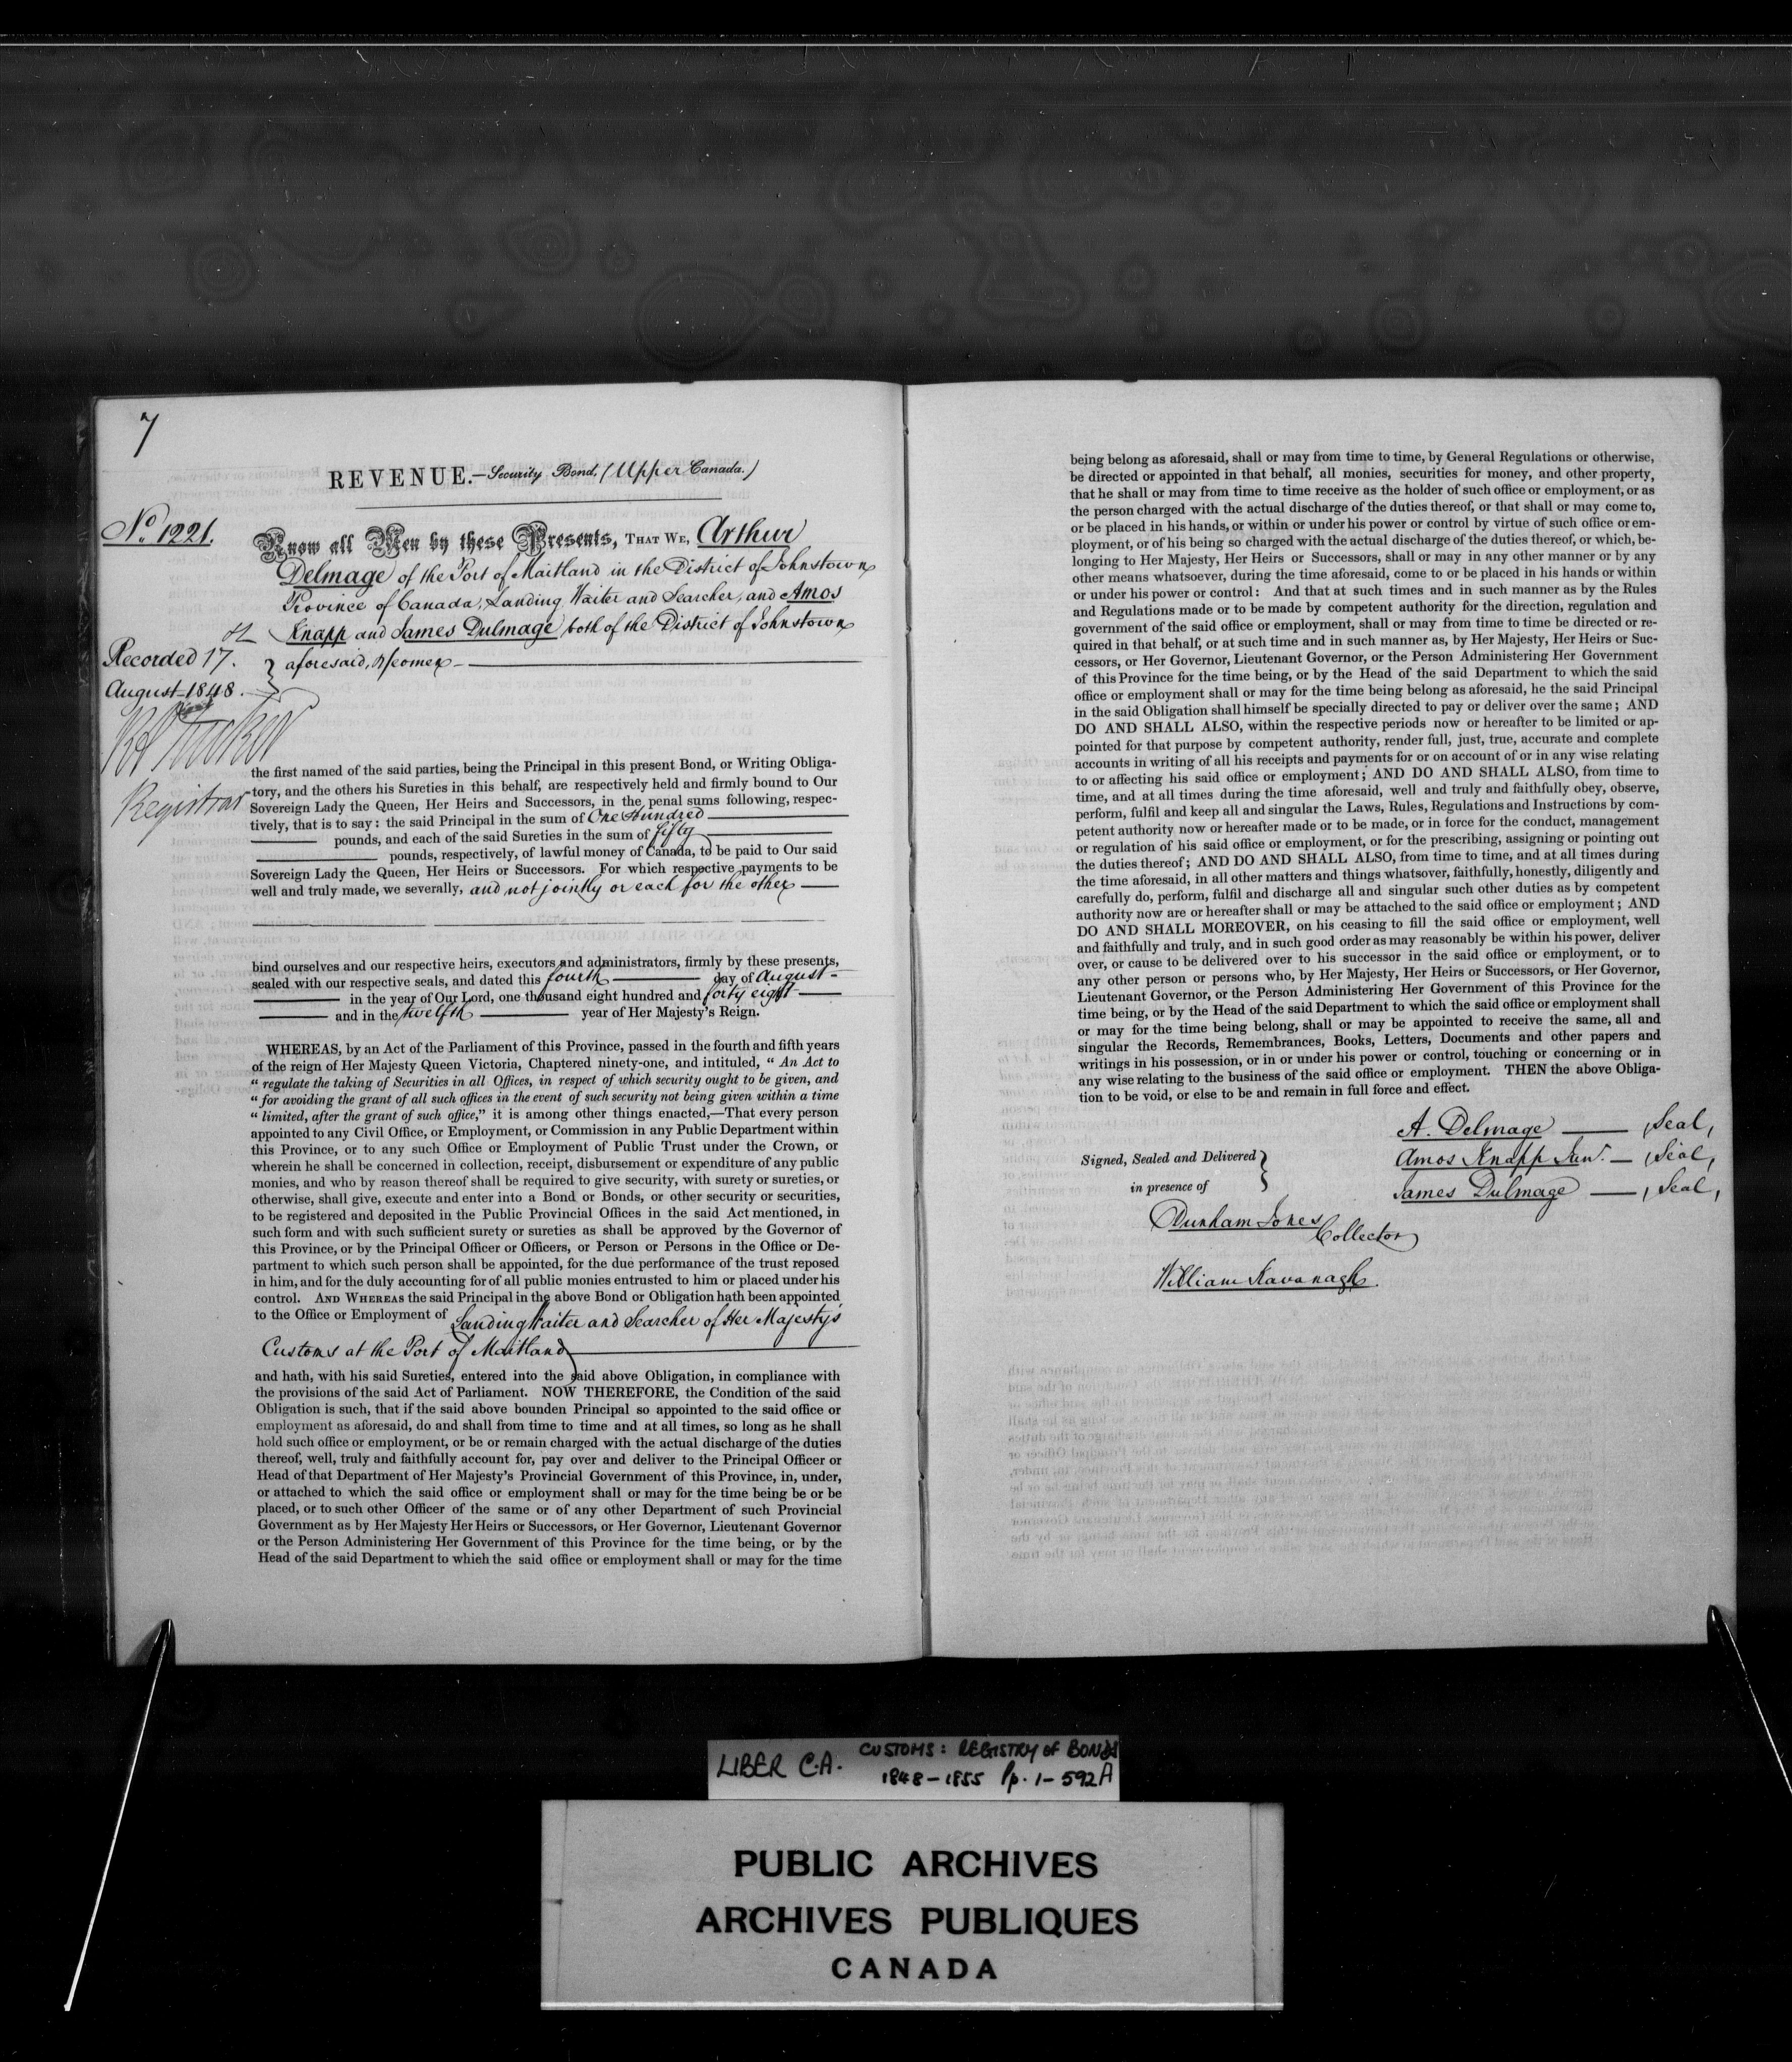 7
REVENUE.—Security Bond, (Upper Canada.)
No. 1221.
Know all Men by these Presents, THAT WE, Arthur
Delmage of the Port of Maitland in the District of Johnstown
Province of Canada, Landing Waiter and Searcher, and Amos
Knapp and James Dulmage both of the District of Johnstown
aforesaid, Yeomen
Recorded 17th
August 1848.
Registrar
the first named of the said parties, being the Principal in this present Bond, or Writing Obliga-
tory, and the others his Sureties in this behalf, are respectively held and firmly bound to Our
Sovereign Lady the Queen, Her Heirs and Successors, in the penal sums following, respec-
tively, that is to say: the said Principal in the sum of One Hundred
pounds, and each of the said Sureties in the sum of fifty
pounds, respectively, of lawful money of Canada, to be paid to Our said
Sovereign Lady the Queen, Her Heirs or Successors. For which respective payments to be
well and truly made, we severally, and not jointly or each for the other
bind ourselves and our respective heirs, executors and administrators, firmly by these presents,
sealed with our respective seals, and dated this fourth day of August
in the year of Our Lord, one thousand eight hundred and forty eight
and in the twelfth year of Her Majesty's Reign.
WHEREAS, by an Act of the Parliament of this Province, passed in the fourth and fifth years
of the reign of Her Majesty Queen Victoria, Chaptered ninety-one, and intituled, " An Act to
" regulate the taking of Securities in all Offices, in respect of which security ought to be given, and
" for avoiding the grant of all such offices in the event of such security not being given within a time
" limited, after the grant of such office," it is among other things enacted,—That every person
appointed to any Civil Office, or Employment, or Commission in any Public Department within
this Province, or to any such Office or Employment of Public Trust under the Crown, or
wherein he shall be concerned in collection, receipt, disbursement or expenditure of any public
monies, and who by reason thereof shall be required to give security, with surety or sureties, or
otherwise, shall give, execute and enter into a Bond or Bonds, or other security or securities,
to be registered and deposited in the Public Provincial Offices in the said Act mentioned, in
such form and with such sufficient surety or sureties as shall be approved by the Governor of
this Province, or by the Principal Officer or Officers, or Person or Persons in the Office or De-
partment to which such person shall be appointed, for the due performance of the trust reposed
in him, and for the duly accounting for of all public monies entrusted to him or placed under his
control. AND WHEREAS the said Principal in the above Bond or Obligation hath been appointed
to the Office or Employment of Landing Waiter and Searcher of Her Majesty's
Customs at the Port of Maitland
and hath, with his said Sureties, entered into the said above Obligation, in compliance with
the provisions of the said Act of Parliament. NOW THEREFORE, the Condition of the said
Obligation is such, that if the said above bounden Principal so appointed to the said office or
employment as aforesaid, do and shall from time to time and at all times, so long as he shall
hold such office or employment, or be or remain charged with the actual discharge of the duties
thereof, well, truly and faithfully account for, pay over and deliver to the Principal Officer or
Head of that Department of Her Majesty's Provincial Government of this Province, in, under,
or attached to which the said office or employment shall or may for the time being be or be
placed, or to such other Officer of the same or of any other Department of such Provincial
Government as by Her Majesty Her Heirs or Successors, or Her Governor, Lieutenant Governor
or the Person Administering Her Government of this Province for the time being, or by the
Head of the said Department to which the said office or employment shall or may for the time
being belong as aforesaid, shall or may from time to time, by General Regulations or otherwise,
be directed or appointed in that behalf, all monies, securities for money, and other property,
that he shall or may from time to time receive as the holder of such office or employment, or as
the person charged with the actual discharge of the duties thereof, or that shall or may come to,
or be placed in his hands, or within or under his power or control by virtue of such office or em-
ployment, or of his being so charged with the actual discharge of the duties thereof, or which, be-
longing to Her Majesty, Her Heirs or Successors, shall or may in any other manner or by any
other means whatsoever, during the time aforesaid, come to or be placed in his hands or within
or under his power or control: And that at such times and in such manner as by the Rules
and Regulations made or to be made by competent authority for the direction, regulation and
government of the said office or employment, shall or may from time to time be directed or re-
quired in that behalf, or at such time and in such manner as, by Her Majesty, Her Heirs or Suc-
cessors, or Her Governor, Lieutenant Governor, or the Person Administering Her Government
of this Province for the time being, or by the Head of the said Department to which the said
office or employment shall or may for the time being belong as aforesaid, he the said Principal
in the said Obligation shall himself be specially directed to pay or deliver over the same; AND
DO AND SHALL ALSO, within the respective periods now or hereafter to be limited or ap-
pointed for that purpose by competent authority, render full, just, true, accurate and complete
accounts in writing of all his receipts and payments for or on account of or in any wise relating
to or affecting his said office or employment; AND DO AND SHALL ALSO, from time to
time, and at all times during the time aforesaid, well and truly and faithfully obey, observe,
perform, fulfil and keep all and singular the Laws, Rules, Regulations and Instructions by com-
petent authority now or hereafter made or to be made, or in force for the conduct, management
or regulation of his said office or employment, or for the prescribing, assigning or pointing out
the duties thereof; AND DO AND SHALL ALSO, from time to time, and at all times during
the time aforesaid, in all other matters and things whatsover, faithfully, honestly, diligently and
carefully do, perform, fulfil and discharge all and singular such other duties as by competent
authority now are or hereafter shall or may be attached to the said office or employment; AND
DO AND SHALL MOREOVER, on his ceasing to fill the said office or employment, well
and faithfully and truly, and in such good order as may reasonably be within his power, deliver
over, or cause to be delivered over to his successor in the said office or employment, or to
any other person or persons who, by Her Majesty, Her Heirs or Successors, or Her Governor,
Lieutenant Governor, or the Person Administering Her Government of this Province for the
time being, or by the Head of the said Department to which the said office or employment shall
or may for the time being belong, shall or may be appointed to receive the same, all and
singular the Records, Remembrances, Books, Letters, Documents and other papers and
writings in his possession, or in or under his power or control, touching or concerning or in
any wise relating to the business of the said office or employment. THEN the above Obliga-
tion to be void, or else to be and remain in full force and effect.
A. Delmage (Seal)
Signed, Sealed and Delivered
Amos Knapp Junr. (Seal)
in presence of
James Dulmage (Seal)
Dunham Jones
Collector
William Kavanagh.
LIBER C.A. CUSTOMS: REGISTRY OF BONDS
1848–1855 Pp. 1–592A
PUBLIC ARCHIVES
ARCHIVES PUBLIQUES
CANADA